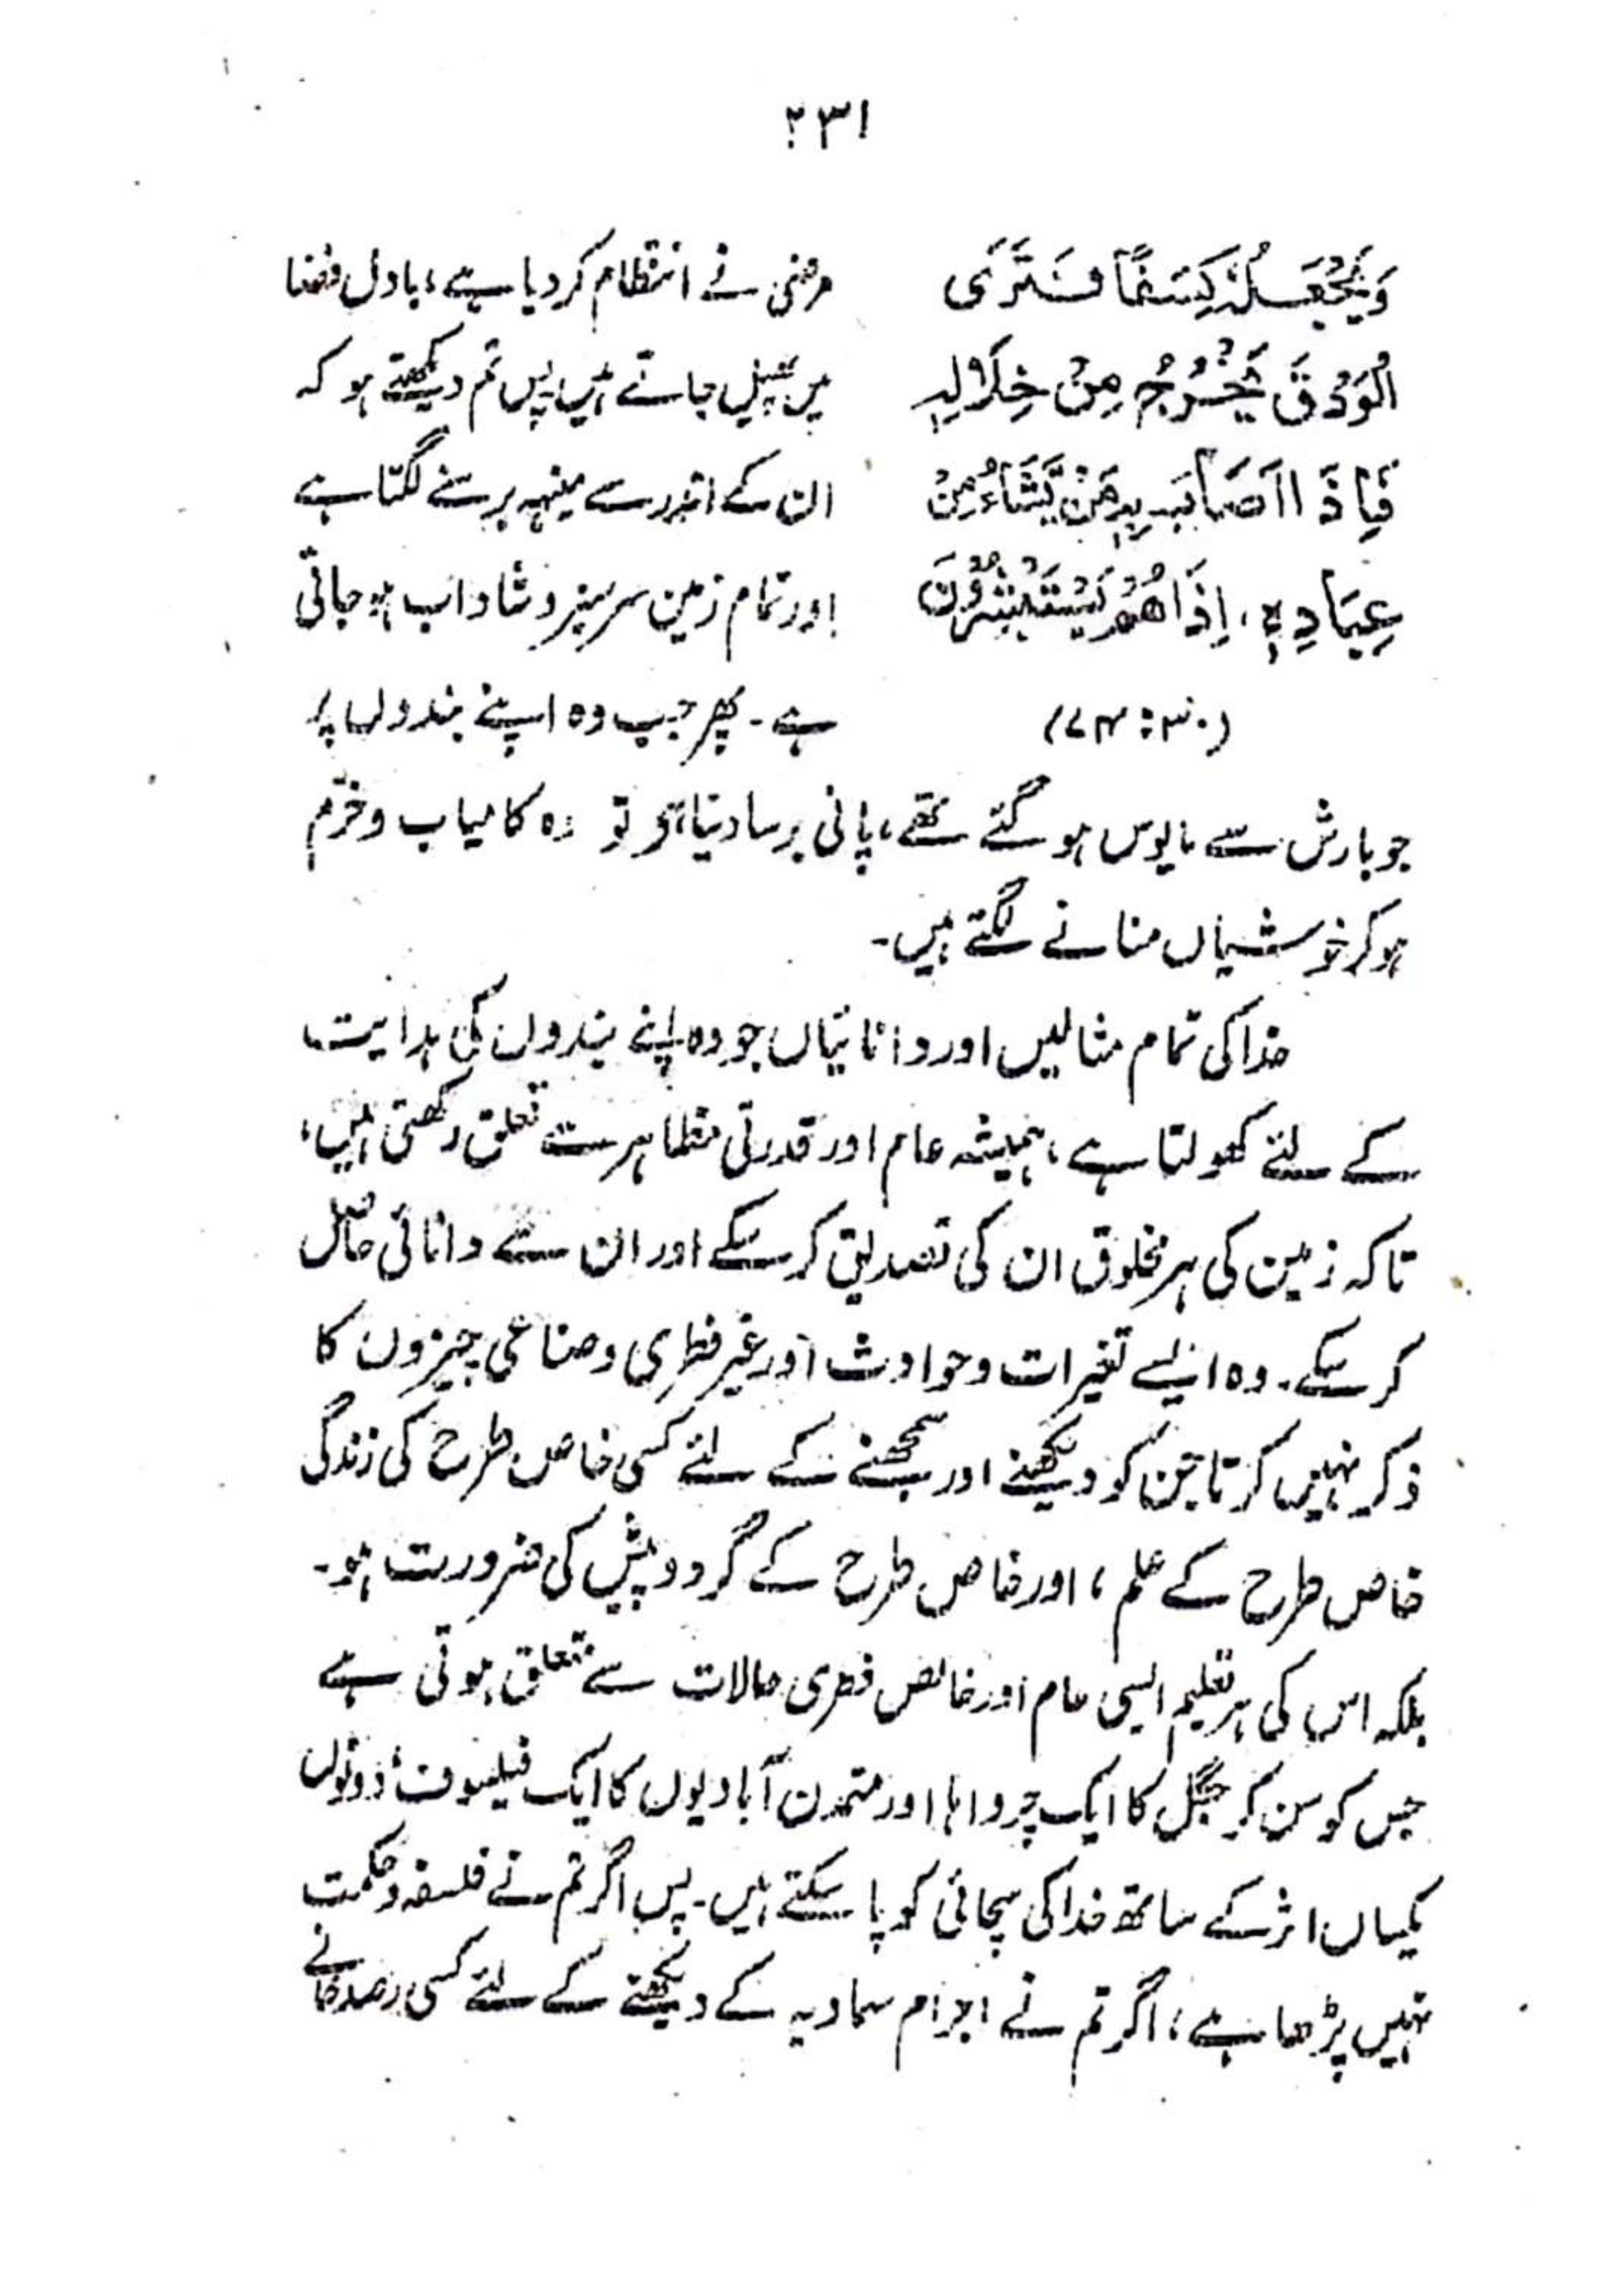 ۲۳۱
وَيَجْعَلُهٗ كِسَفًا فَتَرَى
الْوَدْقَ يَخْرُجُ مِنْ خِلَالِهٖ
فَاِذَا اَصَابَ بِهٖ مَنْ يَّشَآءُ مِنْ
عِبَادِهٖ، اِذَا هُمْ يَسْتَبْشِرُوْنَ
(۳۰:۴۷)
مرضی نے انتظام کر دیا ہے، بادل فضا
میں پھیل جاتے ہیں پس تم دیکھتے ہو کہ
ان کے اندر سے مینہہ برسنے لگتا ہے
اور تمام زمین سرسبز و شاداب ہو جاتی
ہے۔ پھر جب وہ اپنے بندوں پر
جو بارش سے مایوس ہو گئے تھے، پانی برسا دیتا ہے تو وہ کامیاب و خرّم
ہو کر خوشیاں منانے لگتے ہیں۔
خدا کی تمام مثالیں اور دانائیاں جو وہ اپنے بندوں کی ہدایت
کے لئے کھولتا ہے، ہمیشہ عام اور قدرتی مظاہر سے تعلق رکھتی ہیں،
تاکہ زمین کی ہر مخلوق ان کی تصدیق کر سکے اور ان سے دانائی حاصل
کر سکے۔ وہ ایسے تغیرات و حوادث اور غیر فطری و صناعی چیزوں کا
ذکر نہیں کرتا جن کو دیکھنے اور سمجھنے کے لئے کسی خاص طرح کی زندگی
خاص طرح کے علم، اور خاص طرح کے گردوپیش کی ضرورت ہو۔
بلکہ اس کی ہر تعلیم ایسی عام اور خالص فطری حالات سے متعلق ہوتی ہے
جس کو سن کر جنگل کا ایک چرواہا اور متمدن آبادیوں کا ایک فیلسوف، دونوں
یکساں اثر کے ساتھ خدا کی سچائی کو پا سکتے ہیں۔ پس اگر تم نے فلسفہ و حکمت
نہیں پڑھا ہے، اگر تم نے اجرام سماویہ کے دیکھنے کے لئے کسی رصد خانے